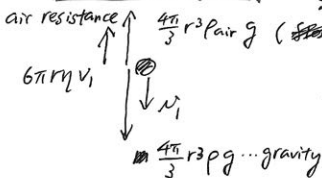 air resistance
4π/3 r³ρair g (
6πrηv₁
v₁
4π/3 r³ρg ⋯ gravity